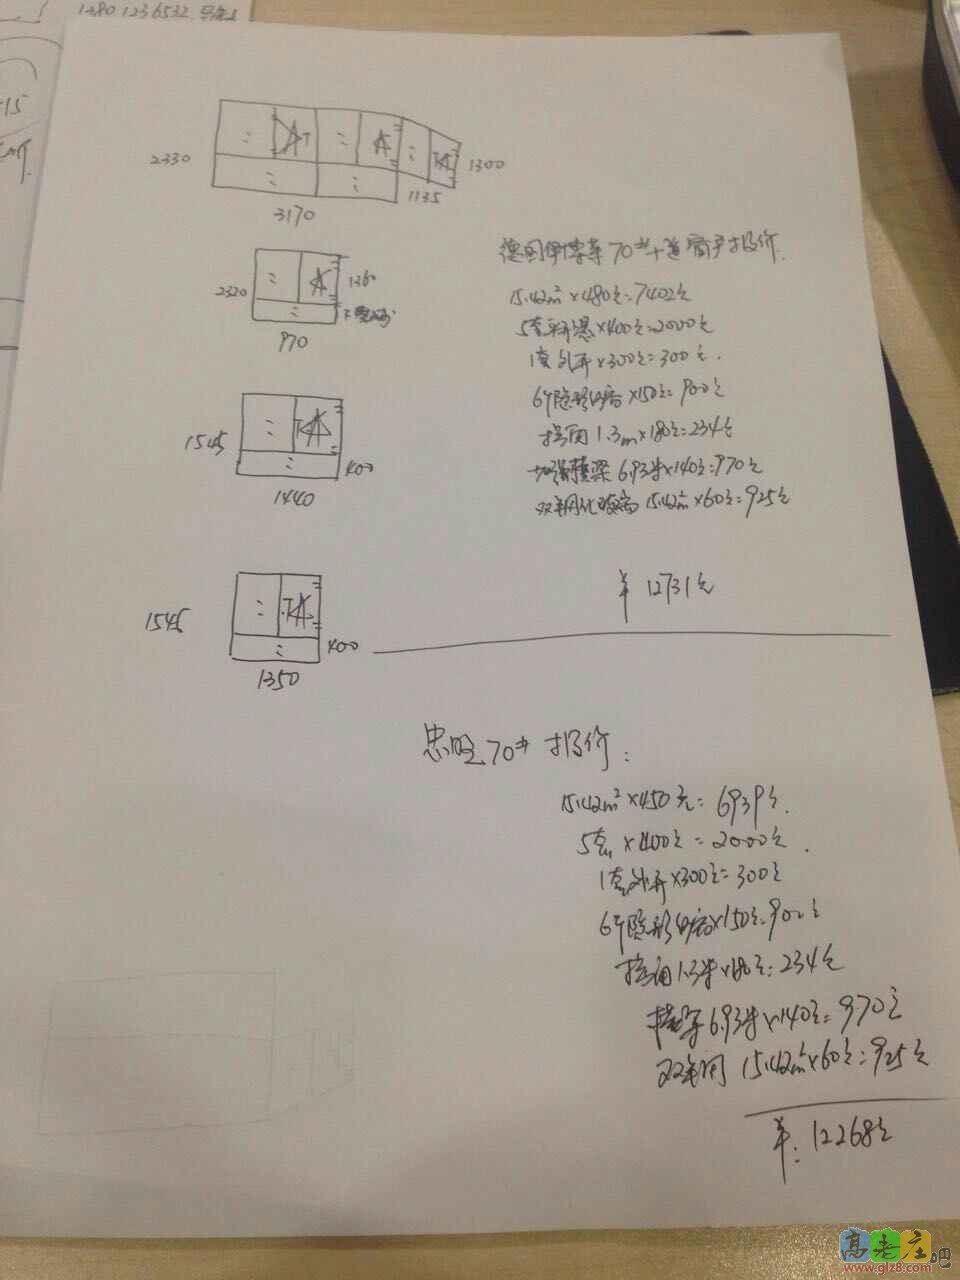 1380 1236532
15
2330
1300
1135
3170
2320
1360
970
德国 70# 窗户报价.
15.42m²×480元=7402元
5套 ×400元=2000元
1套外开×300元=300元.
6个隐形纱窗×150元=900元
转角1.3m×180元=234元
加强横梁6.93米×140元=970元
双钢化玻璃15.42m²×60元=925元
1545
400
1440
¥12731元
1545
400
1350
忠旺70#报价:
15.42m²×450元=6939元.
5套×400元=2000元.
1套外开×300元=300元
6个隐形纱窗×150元=900元
转角1.3米×180元=234元
横梁6.93米×140元=970元
双钢 15.42m²×60元=925元
¥:12268元
高老庄吧
www.glz8.com